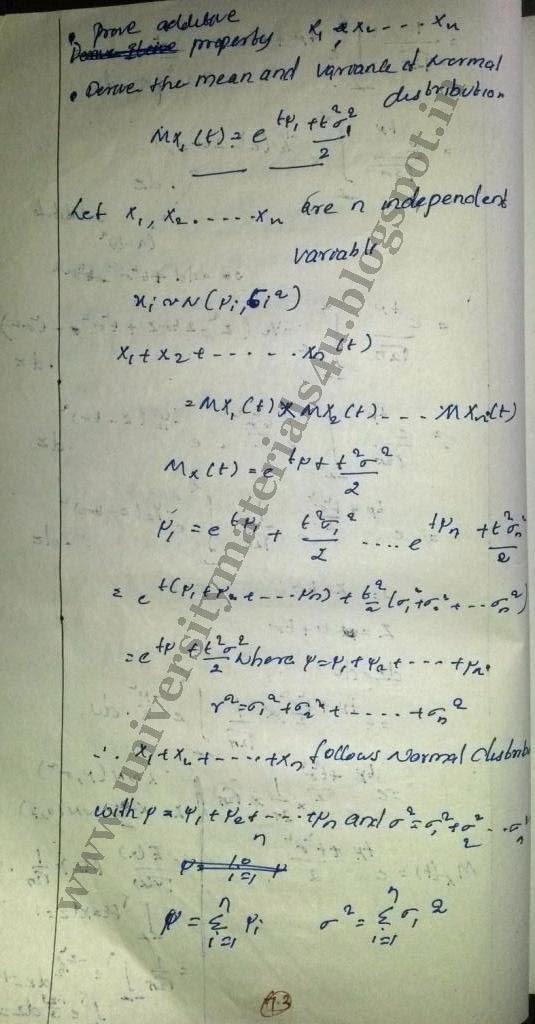 • Prove additive
property x₁ x₂ ---- xₙ
• Derive the mean and variance of Normal
distribution
Mx₁(t) = e^{tμ₁ + t²σ₁²/2}
Let x₁, x₂ ----- xₙ are n independent
variable
xᵢ ~ N(μᵢ, σᵢ²)
x₁ + x₂ + - - - - - - xₙ(t)
= Mx₁(t) × Mx₂(t) - - - - Mxₙ(t)
Mx(t) = e^{tμ + t²σ²/2}
μ₁' = e^{tμ₁ + t²σ₁²/2} .... e^{tμₙ + t²σₙ²/2}
= e^{t(μ₁ + μ₂ + - - - μₙ) + t²/2 (σ₁² + σ₂² + - - - σₙ²)}
= e^{tμ + t²σ²/2} where μ = μ₁ + μ₂ + - - - - + μₙ.
σ² = σ₁² + σ₂² + - - - - - + σₙ²
∴ x₁ + x₂ + - - - - + xₙ follows Normal distrib
with μ = μ₁ + μ₂ + - - - + μₙ and σ² = σ₁² + σ₂² - - - σₙ²
μ = Σⁿᵢ₌₁ μᵢ σ² = Σⁿᵢ₌₁ σᵢ²
www.universitymaterials4u.blogspot.in